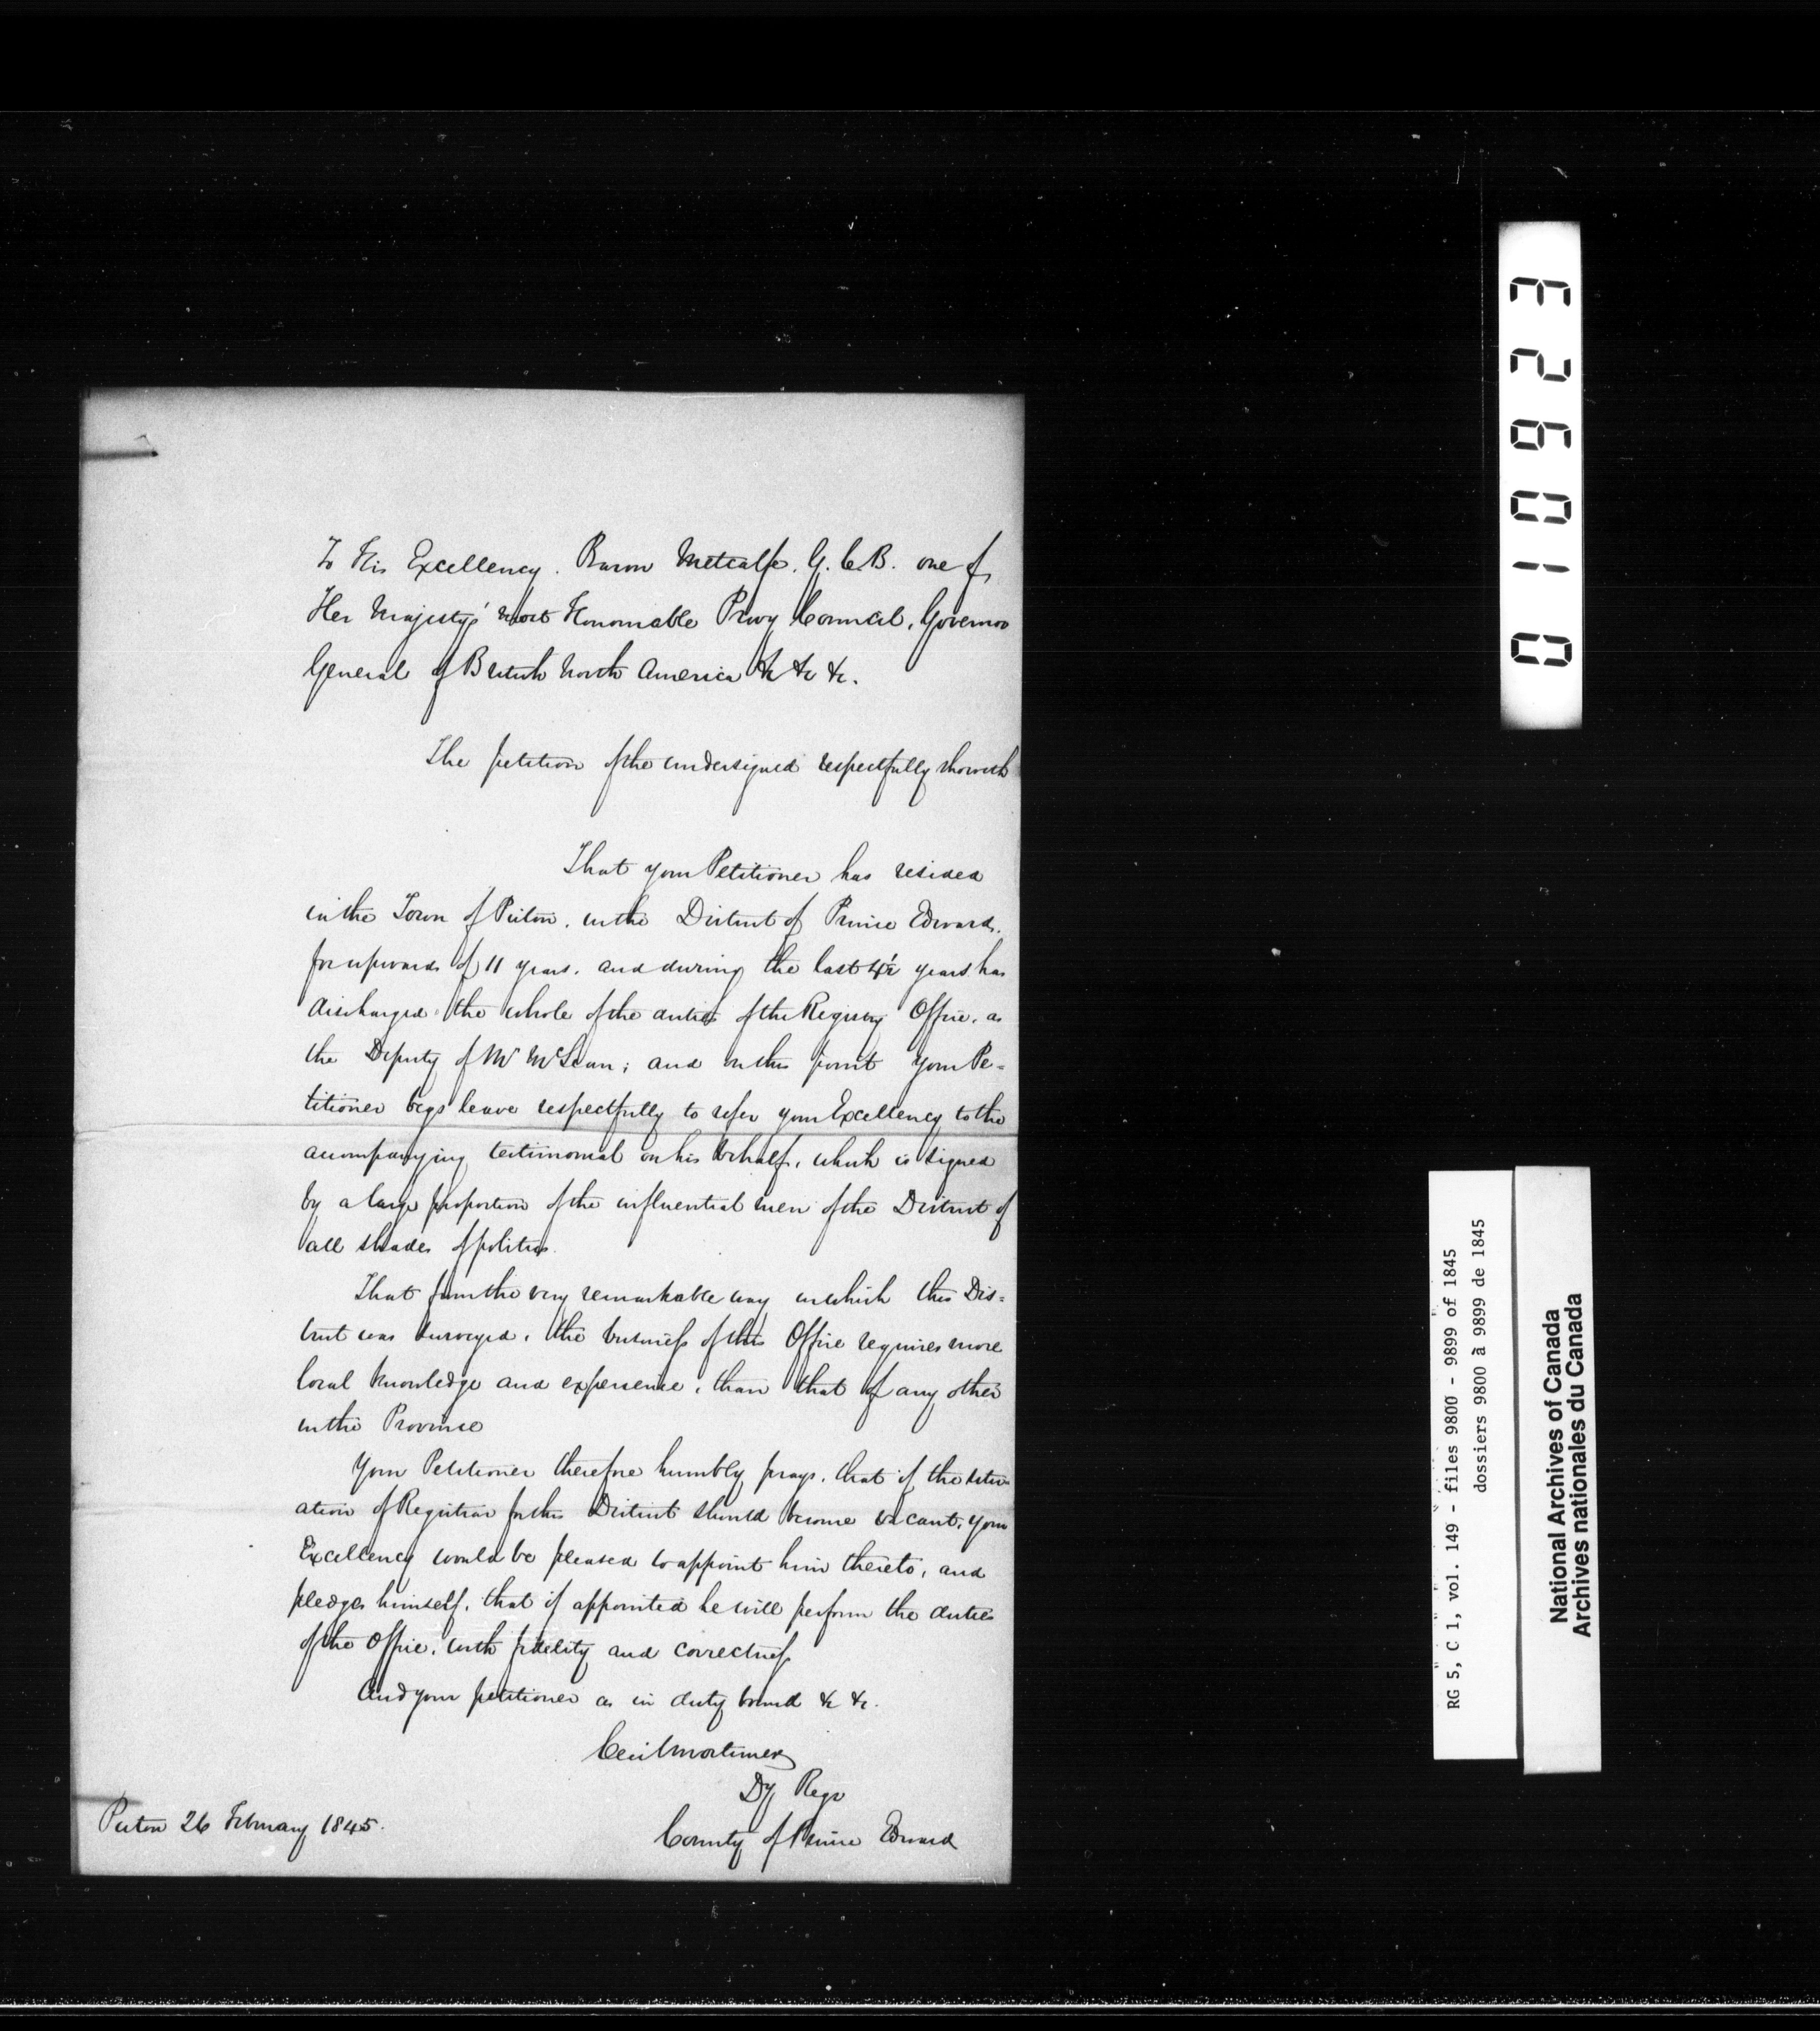 To His Excellency. Baron Metcalfe. G.C.B. one of
Her Majesty's Most Honorable Privy Council, Governor
General of British North America &c &c &c.
The petition of the undersigned respectfully showeth
That your Petitioner has resided
in the Town of Picton. in the District of Prince Edward.
for upwards of 11 years. and during the last 4½ years has
discharged the whole of the duties of the Registry Office. as
the Deputy of Mr McLean; and on this point your Pe=
titioner begs leave respectfully to refer your Excellency to the
accompanying testimonial on his behalf, which is signed
by a large proportion of the influential men of the District of
all shades of politics.
That from the very remarkable way in which this Dis=
trict was surveyed, the business of this Office requires more
local knowledge and experience, than that of any other
in the Province
Your Petitioner therefore humbly prays. that if the situ
ation of Registrar for this District should become vacant. your
Excellency would be pleased to appoint him thereto, and
pledges himself. that if appointed he will perform the duties
of the Office. with fidelity and correctness
And your petitioner as in duty bound &c &c.
Cecil Mortimer
Dy Regr
County of Prince Edward
Picton 26 February 1845.
010923
RG 5, C 1, vol. 149 - files 9800 - 9899 of 1845
dossiers 9800 à 9899 de 1845
National Archives of Canada
Archives nationales du Canada